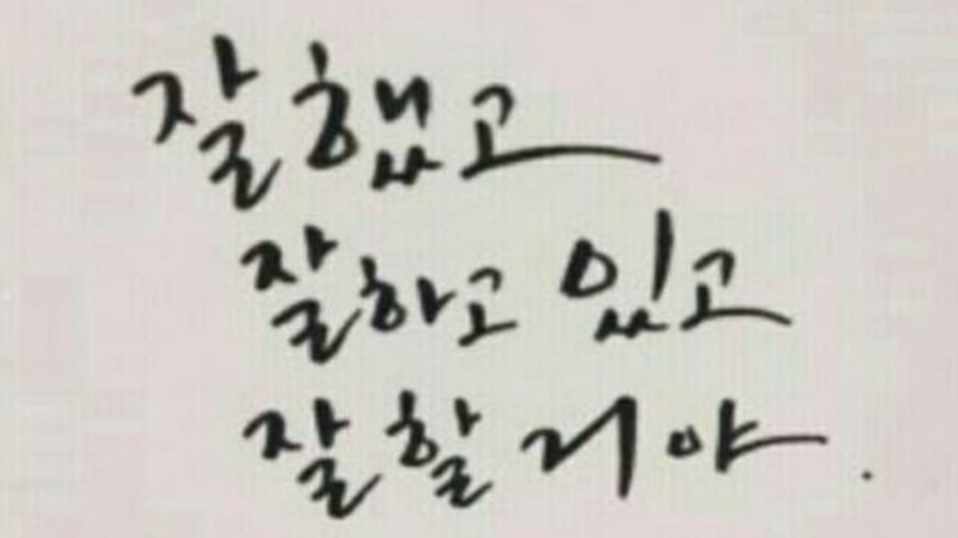 잘했고
잘하고 있고
잘할 거야.